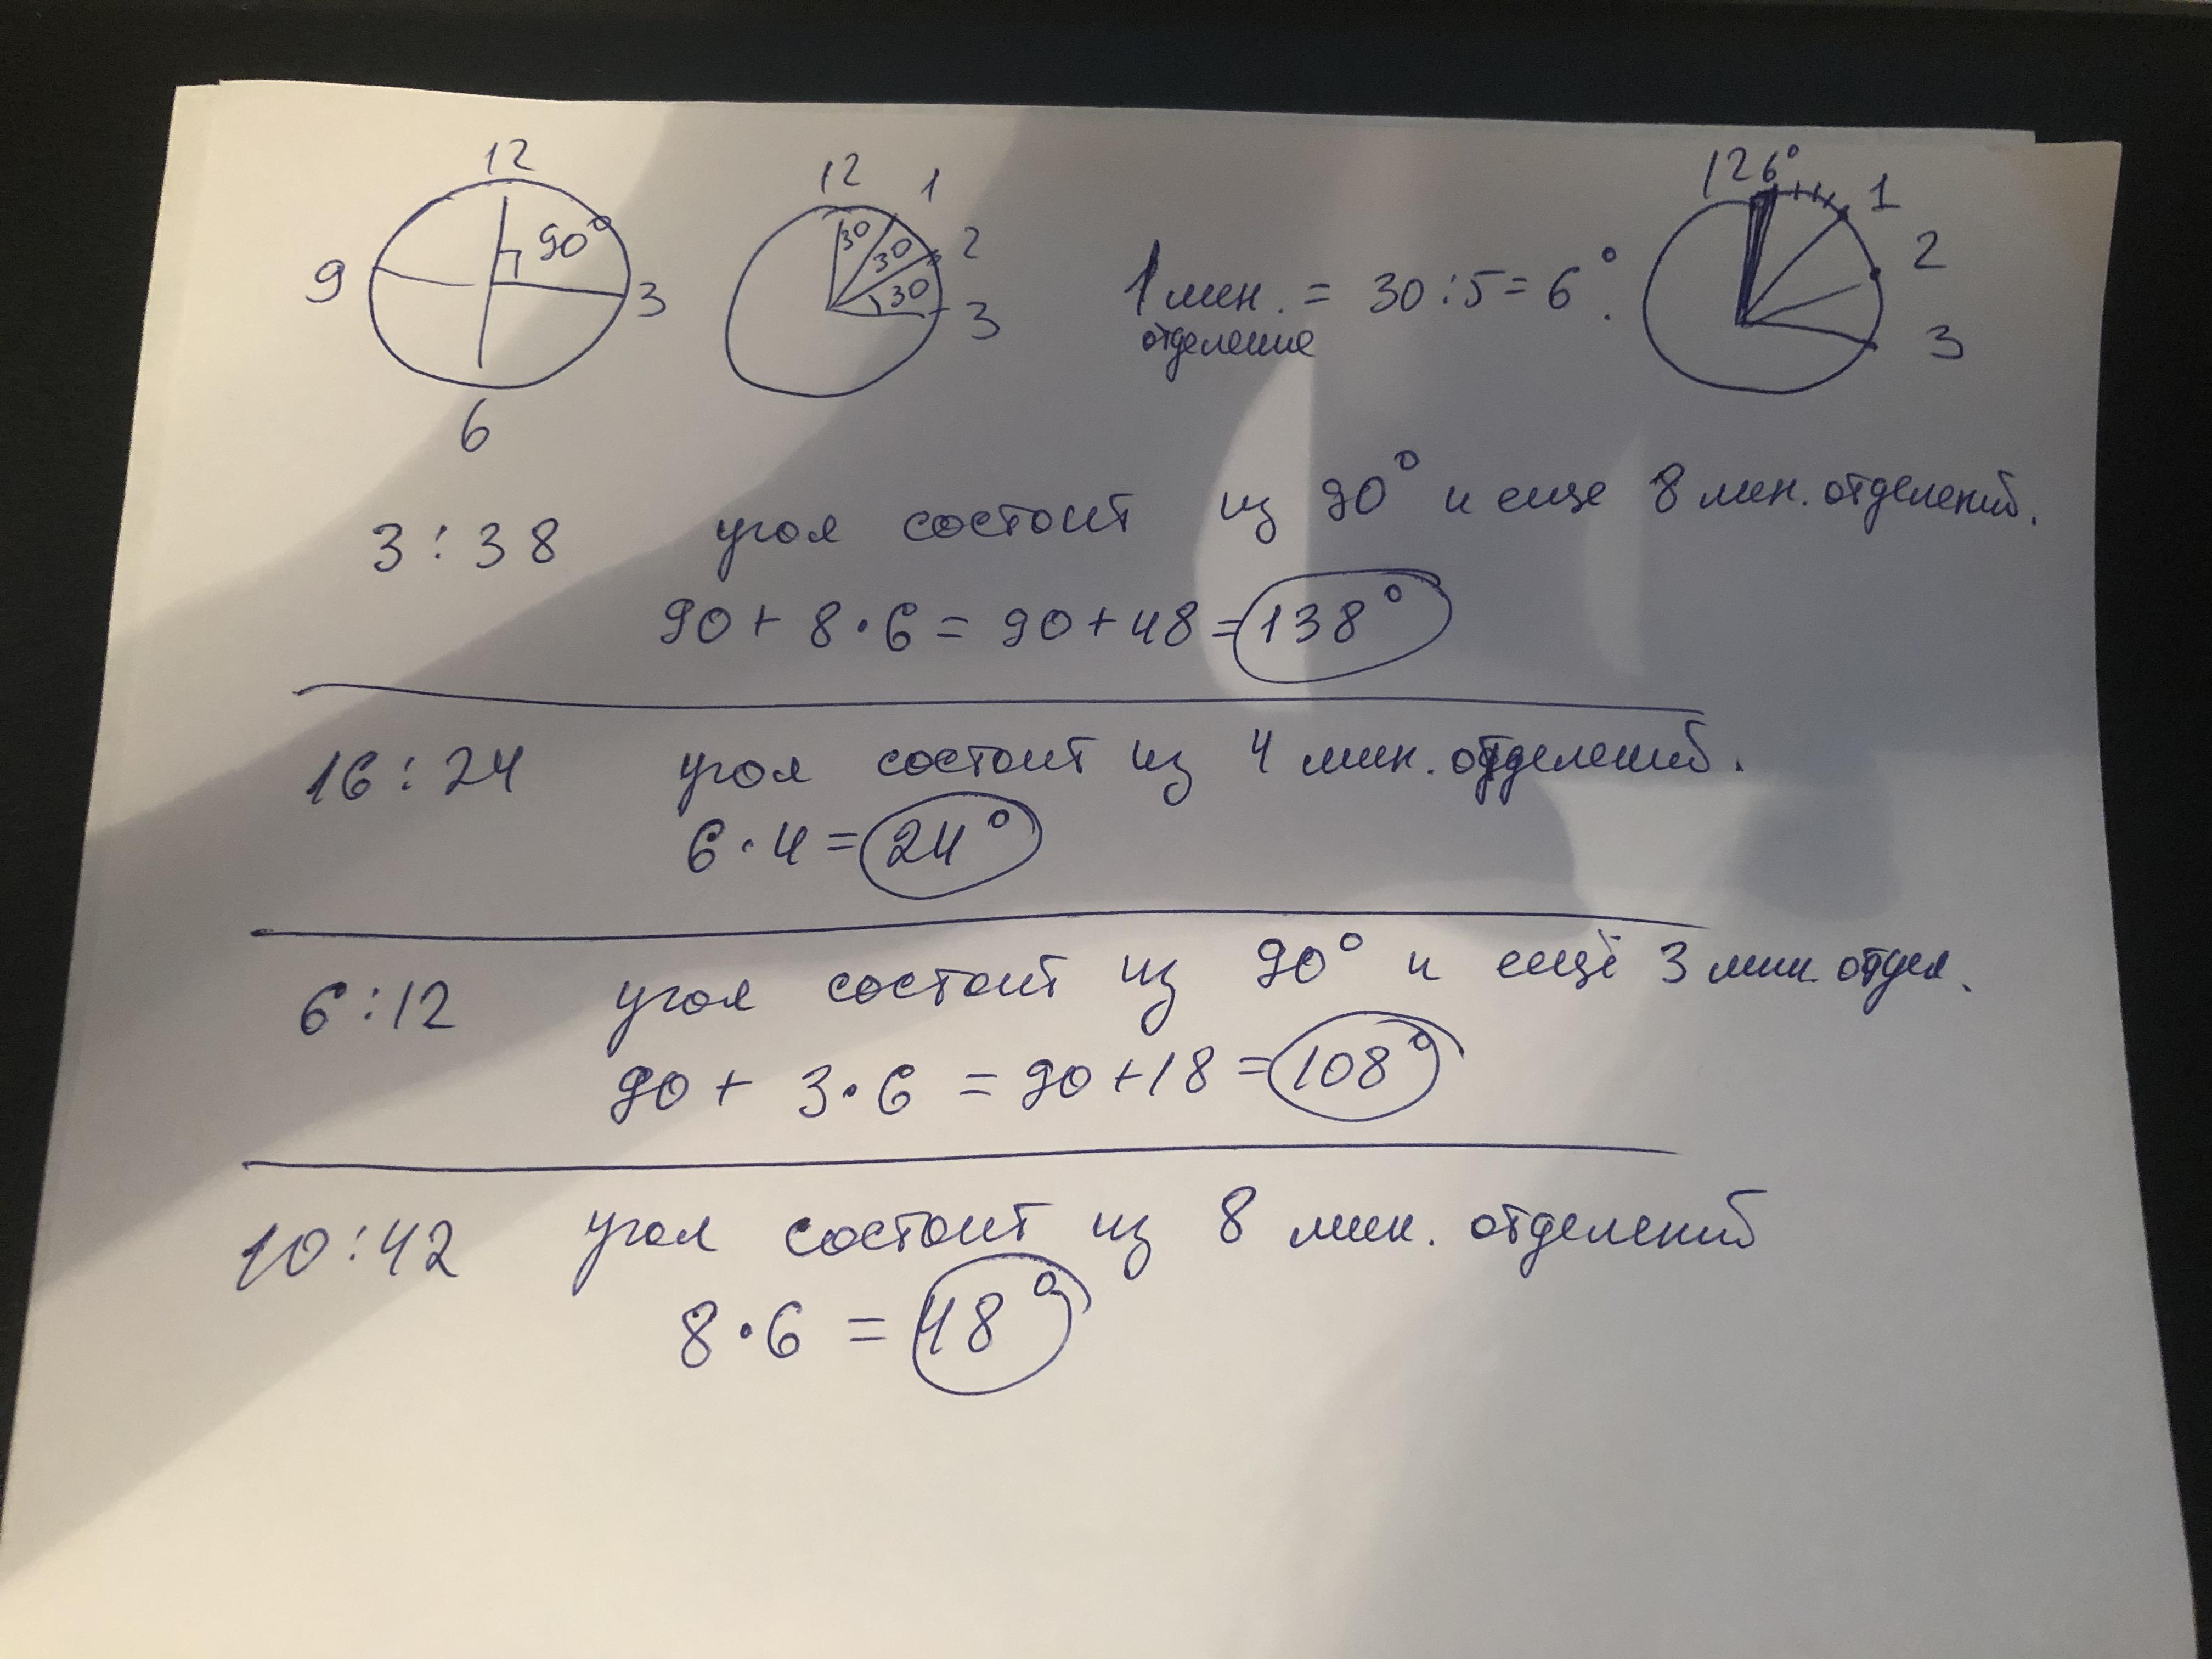 12
90°
9
3
6
12
1
2
3
30
30
30
1 мин. = 30 : 5 = 6°.
отделение
12 6°
1
2
3
3 : 38 угол состоит из 90° и еще 8 мин. отделений.
90 + 8 · 6 = 90 + 48 = 138°
16 : 24 угол состоит из 4 мин. отделений.
6 · 4 = 24°
6 : 12 угол состоит из 90° и ещё 3 мин. отдел.
90 + 3 · 6 = 90 + 18 = 108°
10 : 42 угол состоит из 8 мин. отделений
8 · 6 = 48°